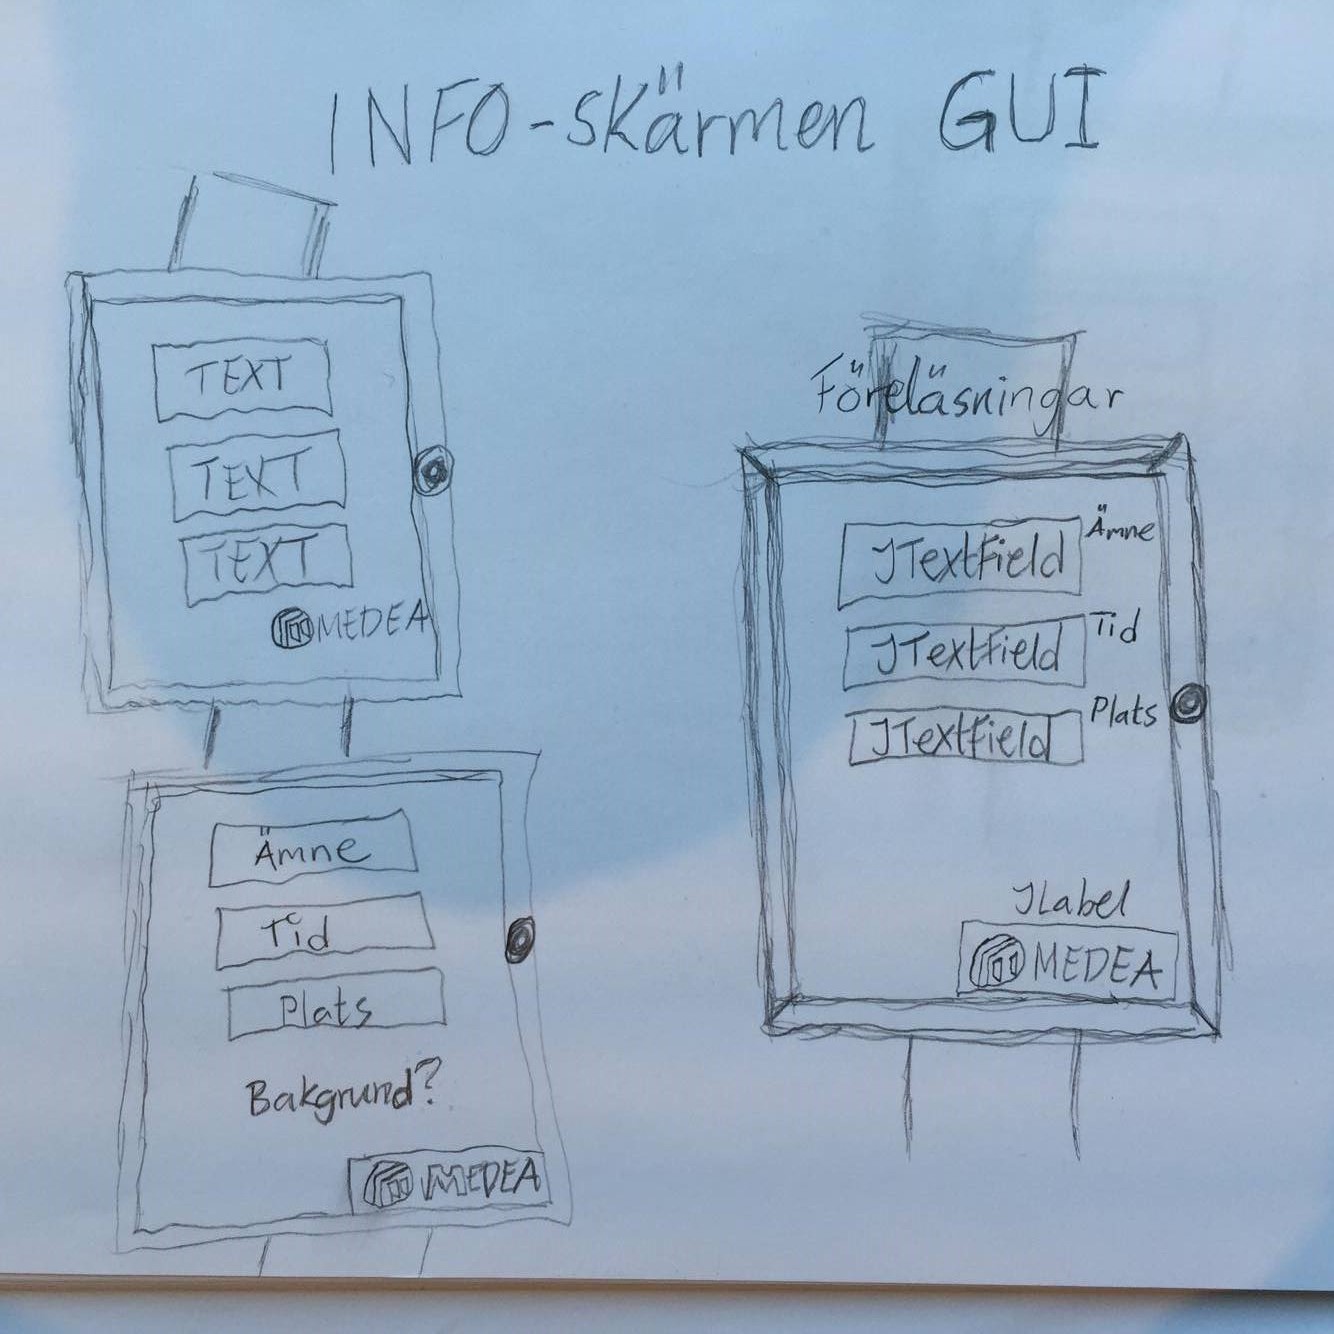 INFO-skärmen GUI
TEXT
TEXT
TEXT
MEDEA
Ämne
Tid
Plats
Bakgrund?
MEDEA
Föreläsningar
JTextField Ämne
JTextField Tid
JTextField Plats
JLabel
MEDEA